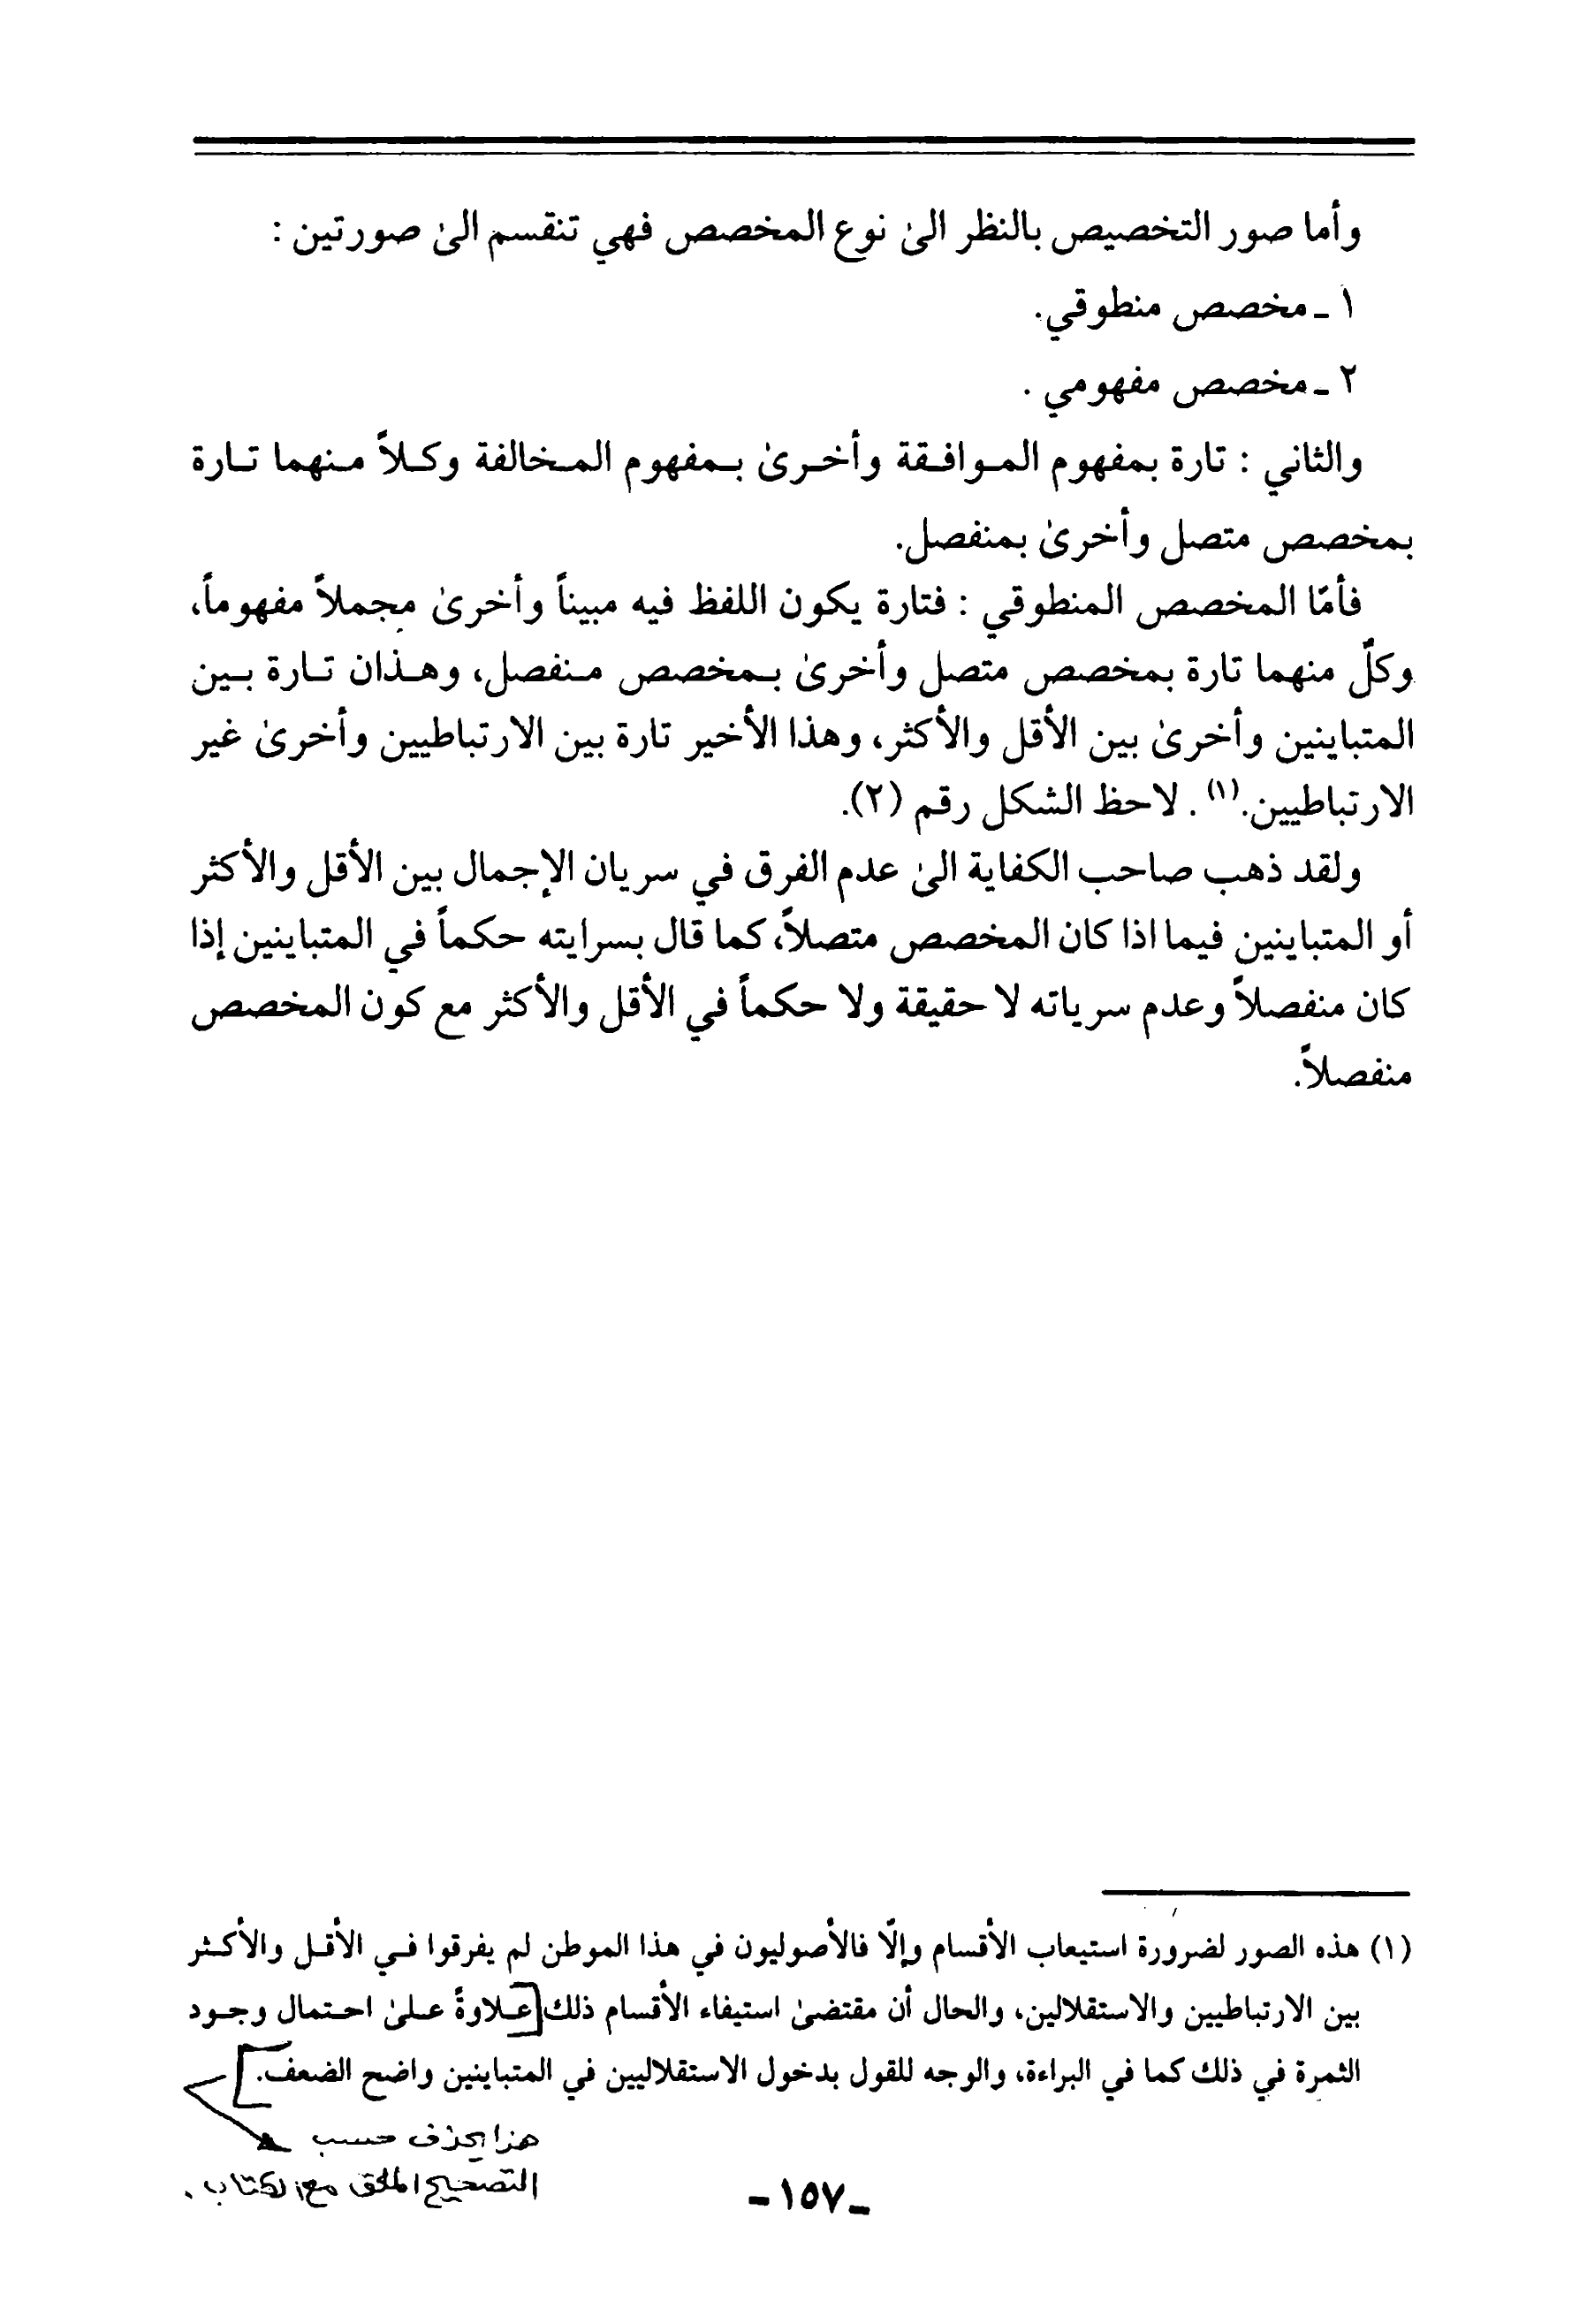 وأما صور التخصيص بالنظر الىٰ نوع المخصص فهي تنقسم الىٰ صورتين :
١ ـ مخصص منطوقي.
٢ ـ مخصص مفهومي .
والثاني : تارة بمفهوم الموافقة وأخرىٰ بمفهوم المخالفة وكلاً منهما تارة
بمخصص متصل وأخرىٰ بمنفصل.
فأمّا المخصص المنطوقي : فتارة يكون اللفظ فيه مبيناً وأخرىٰ مجملاً مفهوماً،
وكلّ منهما تارة بمخصص متصل وأخرىٰ بمخصص منفصل، وهذان تارة بين
المتباينين وأخرىٰ بين الأقل والأكثر، وهذا الأخير تارة بين الارتباطيين وأخرىٰ غير
الارتباطيين.(١) . لاحظ الشكل رقم (٢).
ولقد ذهب صاحب الكفاية الىٰ عدم الفرق في سريان الإجمال بين الأقل والأكثر
أو المتباينين فيما اذا كان المخصص متصلاً، كما قال بسرايته حكماً في المتباينين إذا
كان منفصلاً وعدم سرياته لا حقيقة ولا حكماً في الأقل والأكثر مع كون المخصص
منفصلاً.
(١) هذه الصور لضرورة استيعاب الأقسام وإلّا فالأصوليون في هذا الموطن لم يفرقوا في الأقل والأكثر
بين الارتباطيين والاستقلالين، والحال أن مقتضىٰ استيفاء الأقسام ذلك [علاوةً علىٰ احتمال وجود
الثمرة في ذلك كما في البراءة، والوجه للقول بدخول الاستقلاليين في المتباينين واضح الضعف.]
هذا يحذف حسب
التصحيح الملحق مع الكتاب .
ـ ١٥٧ ـ